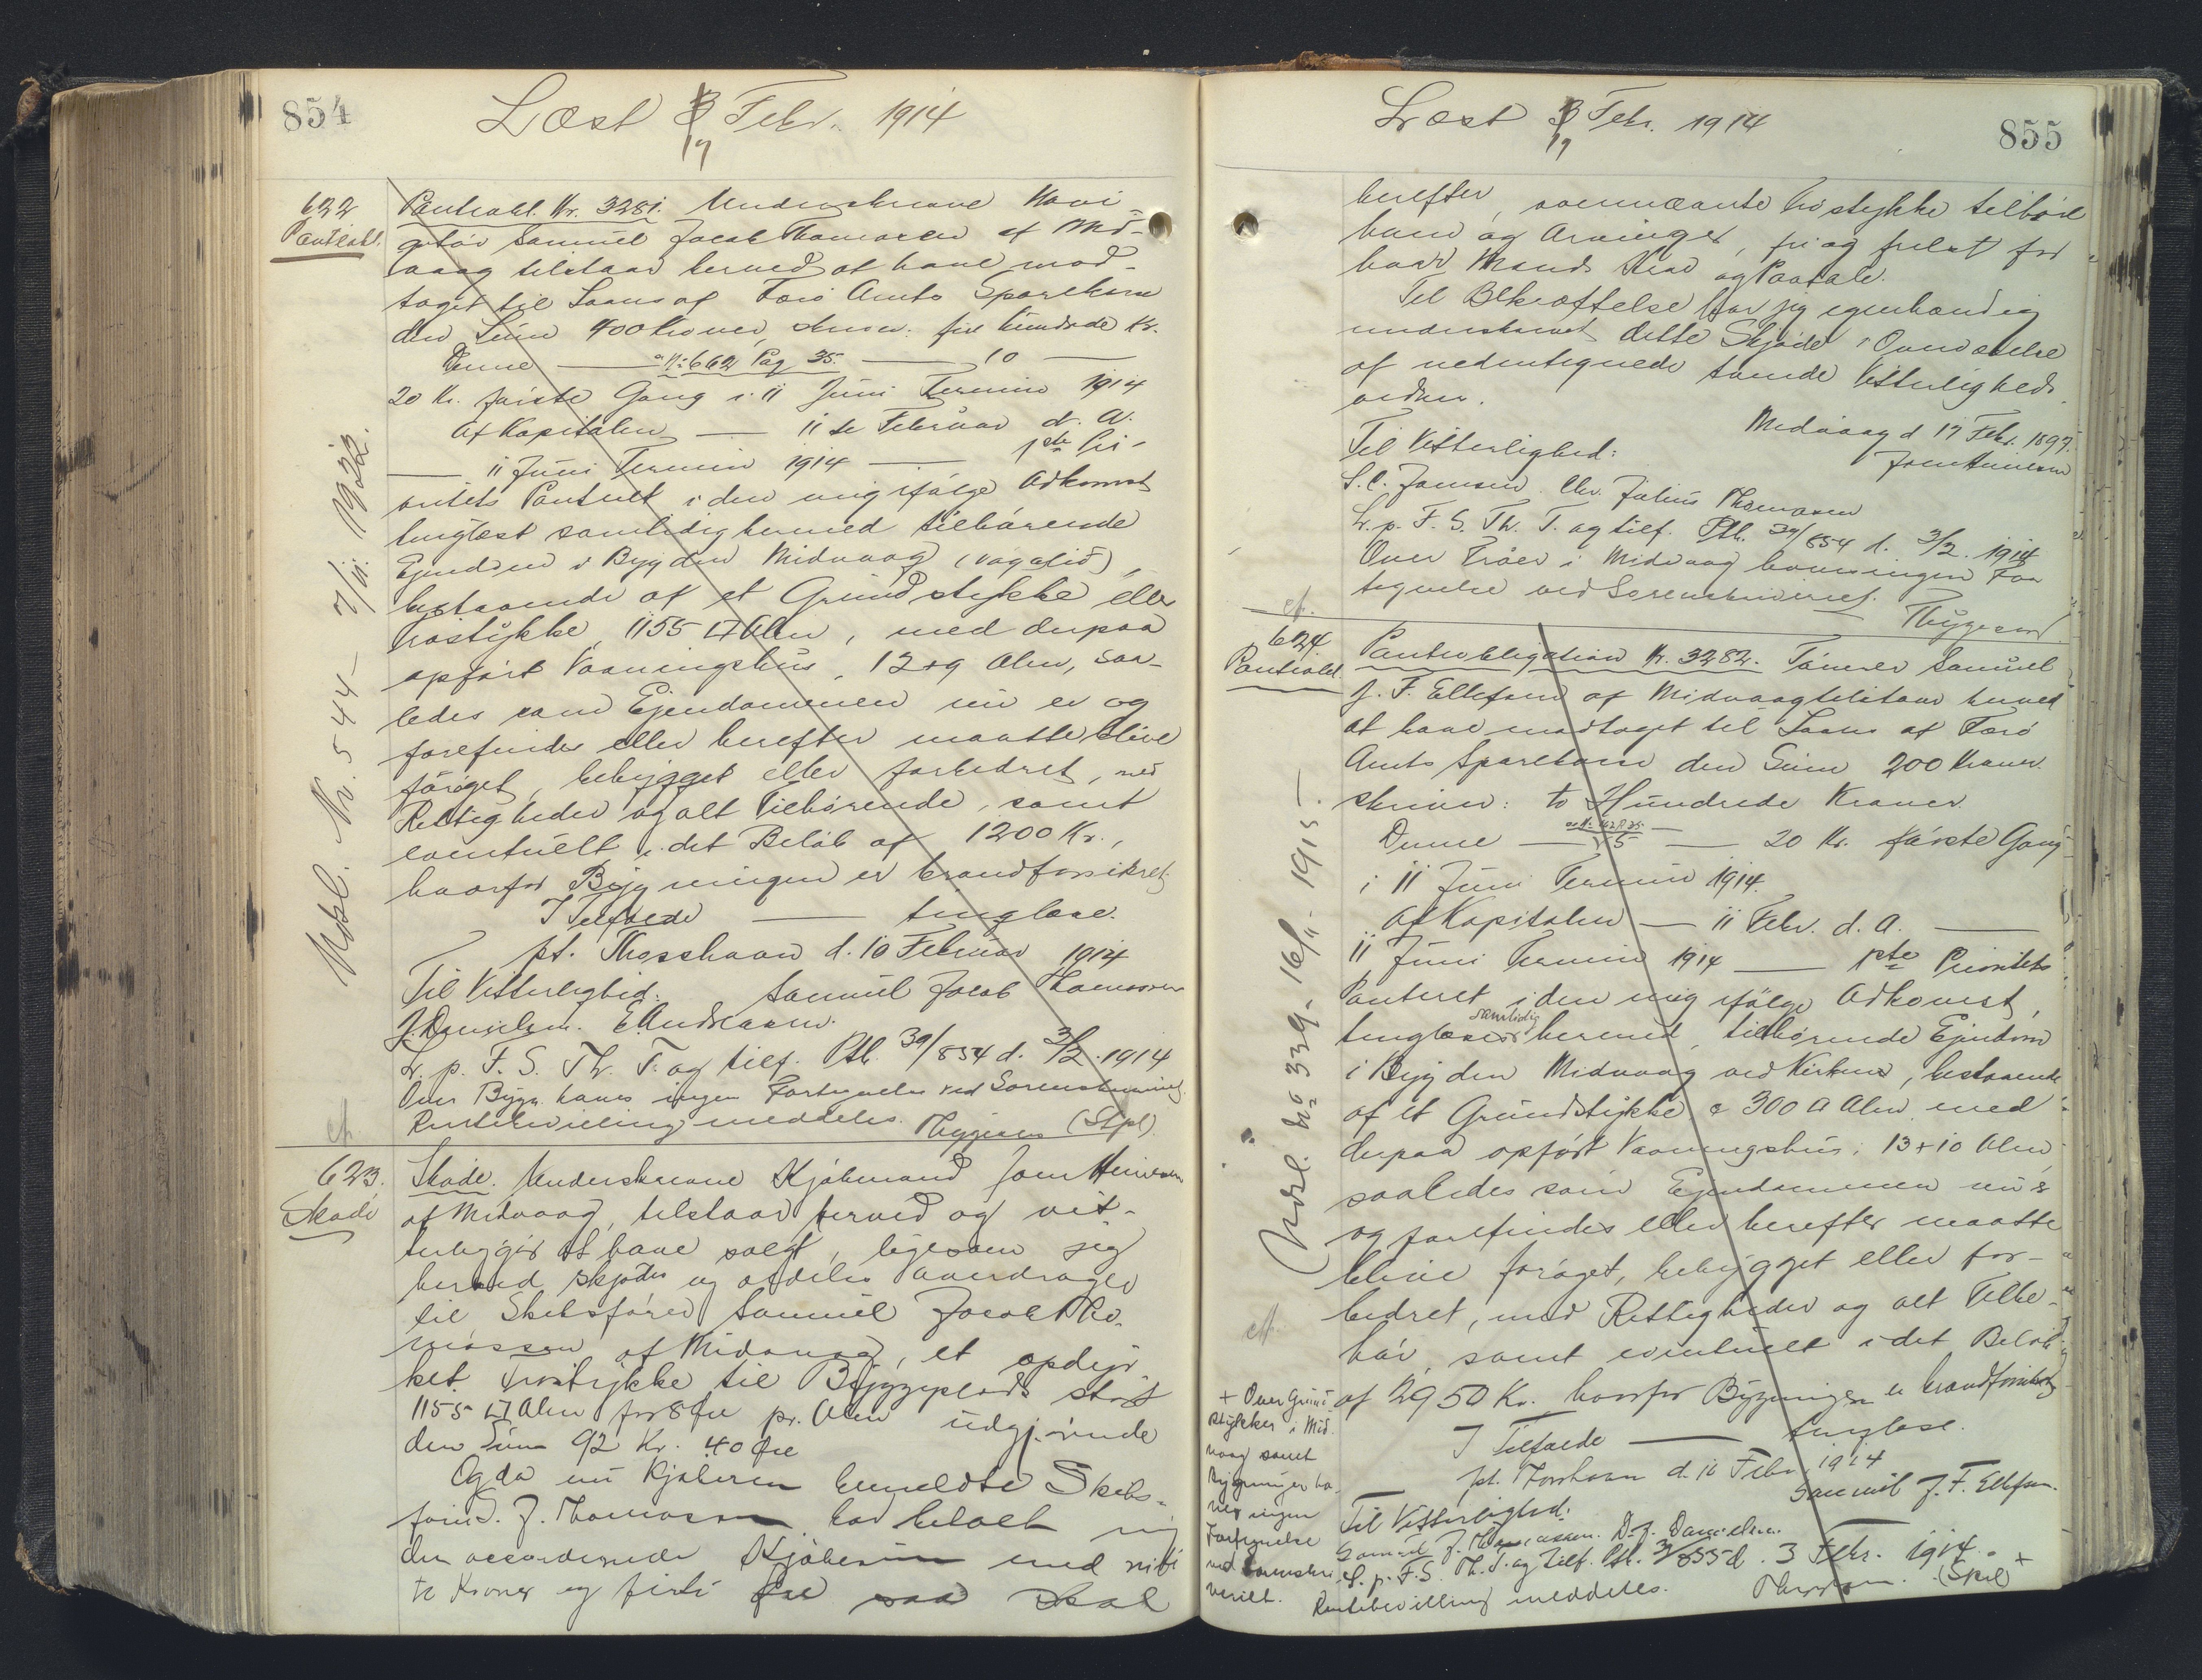 854
Læst 3 Febr. 1914
17
622
Pantobl.
Pantobl. Nr. 3281. Underskrevne Navi-
gatør Samuel Jacob Thomassen af Mid-
vaag tilstaar herved at have mod-
taget til Laans af Færø Amts Sparekasse
den Sum 400 Kroner, skriver: fire hundrede Kr.
Denne — N: 662 Pag 35. — 10 —
20 Kr. første Gang i 11 Juni Termin 1914
Af Kapitalen — 11te Februar d. A.
— 11 Juni Termin 1914 — 1ste Pri-
oritets Panteret i den mig ifølge Adkomst
tinglæst samtidig hermed tilhørende
Ejendom i Bygden Midvaag (vágalið),
bestaaende af et Grundstykke eller
Trøstykke, 1155 □ Alen, med derpaa
opført Vaaningshus, 12 x 9 Alen, saa-
ledes som Ejendommen nu er og
forefindes eller herefter maatte blive
forøget, bebygget eller forbedret, med
Rettigheder og alt Tilhørende, samt
eventuelt i det Beløb af 1200 Kr.,
hvorfor Bygningen er brandforsikret.
I Tilfælde — tinglæse.
pt. Thorshavn d. 10 Februar 1914
Til Vitterlighed: Samuel Jacob Thomassen
J. Danielsen. E. Andreasen.
L. p. F. S. Th. T. og tilf. Ptb. 39/854 d. 3/2. 1914
Over Bygn. haves ingen Fortegnelse ved Sorenskriveriet.
Rentebevilling meddeles. Thygesen (Stpl)
Udsl. Nr. 544 — 7/11. 1932.
ct.
623.
Skøde
Skøde. Underskrevne Kjøbmand Joen Heinesen
af Midvaag, tilstaar herved og vit-
terliggjør at have solgt, ligesom jeg
herved skjøder og aldeles overdrager
til Skibsfører Samuel Jacob Tho-
massen af Midvaag, et opdyr
ket Trøstykke til Byggeplads stort
1155 □ Alen for 8 Øre pr. Alen udgjørende
den Sum 92 Kr. 40 Øre
Og da nu Kjøberen bemeldte Skibs-
fører S. J. Thomassen har betalt mig
den accorderede Kjøbesum med niti
to Kroner og firti Øre saa skal
Læst 3 Febr. 1914
17
855
herefter, ovennævnte Trøstykke tilhøre
ham og Arvinger, fri og frelst for
hver Mands Krav og Paatale.
Til Bekræftelse har jeg egenhændig
underskrevet dette Skjøde i Overværelse
af nedentegnede tvende Vitterligheds
vidner.
Midvaag d 17 Febr. 1897.
Til Vitterlighed: Joen Heinesen
S. C. Jansen. Chr. Julius Thomasen
L. p. F. S. Th. T. og tilf. Ptb. 39/854 d. 3/2. 1914
Over Trøer i Midvaag haves ingen For
tegnelse ved Sorenskriveriet.
Thygesen
ct.
624.
Pantobl.
Pantobligation Nr. 3282. Tømrer Samuel
J. F. Ellefsen af Midvaag tilstaar herved
at have modtaget til Laans af Færø
Amts Sparekasse den Sum 200 Kroner
skriver: to Hundrede Kroner.
Denne — 5 — 20 Kr. første Gang
i 11 Juni Termin 1914.
Af Kapitalen — 11 Febr. d. A. —
11 Juni Termin 1914 — 1ste Prioritets
Panteret i den mig ifølge Adkomst,
tinglæst samtidig hermed, tilhørende Ejendom
i Bygden Midvaag ved Kirken, bestaaende
af et Grundstykke a 300 □ Alen med
derpaa opført Vaaningshus, 13 x 10 Alen,
saaledes som Ejendommen nu er
og forefindes eller herefter maatte
blive forøget, bebygget eller for-
bedret, med Rettigheder og alt Tilbe-
hør, samt eventuelt i det Beløb
af 2950 Kr. hvorfor Bygningen er brandforsikret
I Tilfælde — tinglæse.
pt. Thorshavn d. 11 Febr. 1914
Samuel J. F. Ellefsen.
Til Vitterlighed:
Samuel J. Thomassen. D. J. Danielsen.
L. p. F. S. Th. T. og Tilf. Ptb. 39/855 d. 3 Febr. 1914. +
Rentebevilling meddeles. Thygesen. (Stpl)
Udsl. No 339 - 16/11. 1915.
ct.
+ Over Grund-
stykker i Mid
vaag samt
Bygninger ha-
ves ingen
Fortegnelse
ved Sorenskri-
veriet.